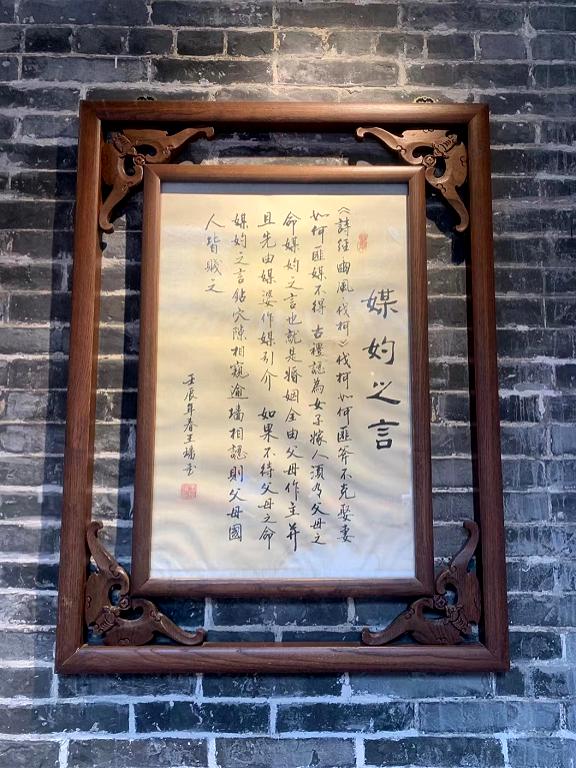 媒妁之言
《詩经豳風·伐柯》伐柯如何匪斧不克娶妻
如何匪媒不得 古禮認為女子嫁人須有父母之
命媒妁之言也就是婚姻全由父母作主并
且先由媒婆作媒引介 如果不待父母之命
媒妁之言鉆穴隙相窺逾墻相認則父母國
人皆贱之
壬辰年春王